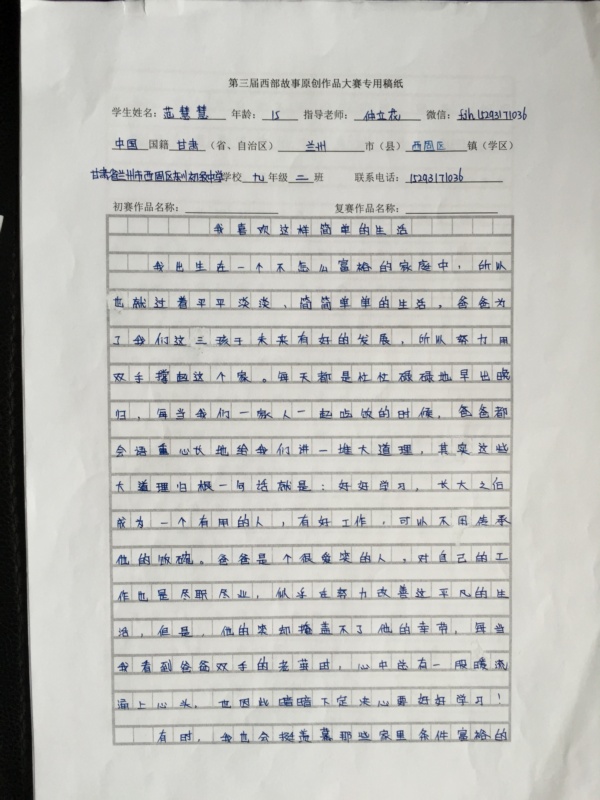 第三届西部故事原创作品大赛专用稿纸
学生姓名：范慧慧 年龄：15 指导老师：仲立花 微信：fjh15293171036
中国国籍甘肃（省、自治区）兰州市（县）西固区镇（学区）
甘肃省兰州市西固区东川初级中学学校九年级二班 联系电话：15293171036
初赛作品名称： 复赛作品名称：
我喜欢这样简单的生活
我出生在一个不怎么富裕的家庭中，所以
也就过着平平淡淡、简简单单的生活，爸爸为
了我们这三孩子未来有好的发展，所以努力用
双手撑起这个家。每天都是忙忙碌碌地早出晚
归，每当我们一家人一起吃饭的时候，爸爸都
会语重心长地给我们讲一堆大道理，其实这些
大道理归根一句话就是：好好学习，长大之后
成为一个有用的人，有好工作，可以不用传承
他的饭碗。爸爸是个很爱笑的人，对自己的工
作也是尽职尽业，似乎在努力改善这平凡的生
活，但是，他的笑却掩盖不了他的辛苦，每当
我看到爸爸双手的老茧时，心中总有一股暖流
涌上心头，也因此暗暗下定决心要好好学习！
有时，我也会挺羡慕那些家里条件富裕的